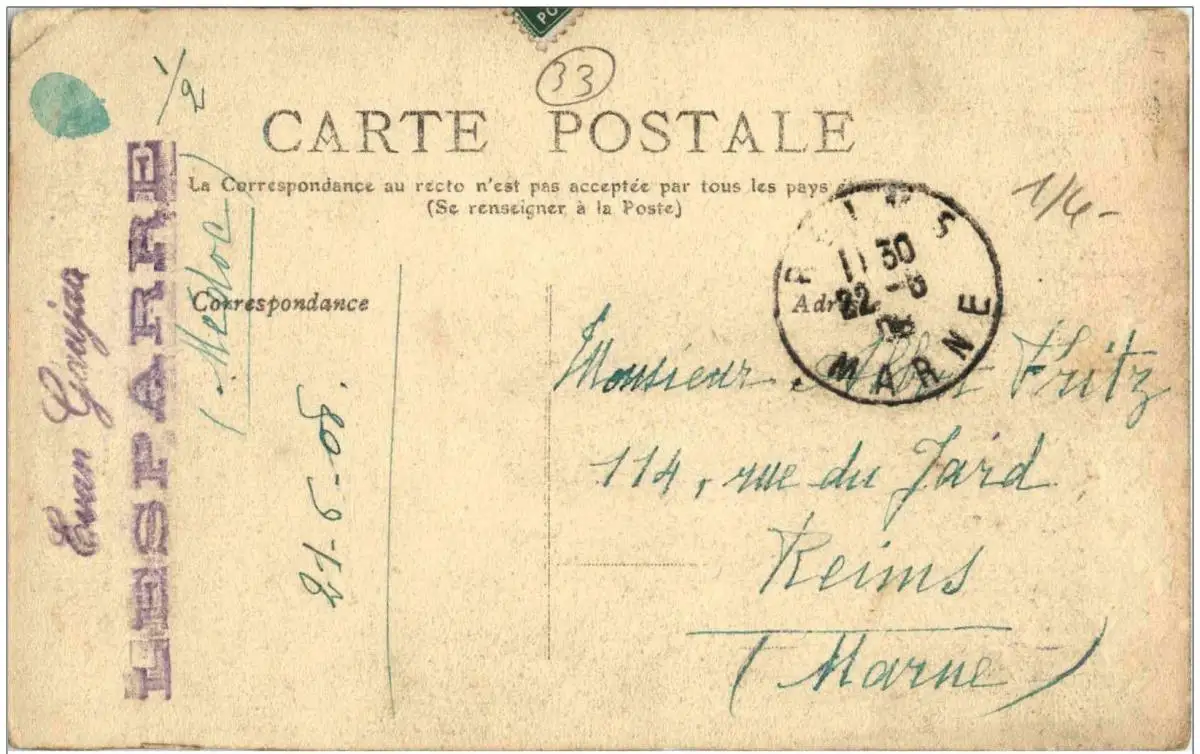 PO
33
1/2
CARTE POSTALE
La Correspondance au recto n'est pas acceptée par tous les pays étrangers
(Se renseigner à la Poste)
1/4-
Correspondance
Adresse
REIMS
11 30
22 -6
08
MARNE
LESPARRE
(Médoc)
21-6-08.
Monsieur Albert Fritz
114, rue du Jard
Reims
(Marne)